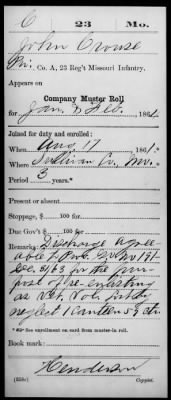 C 23 Mo.
John Crouse
Pri., Co. A, 23 Reg't Missouri Infantry.
Appears on
Company Muster Roll
for Jan & Feb., 1864.
Joined for duty and enrolled:
When Aug 17, 1861.*
Where Sullivan Co. Mo.
Period 3 years.*
Present or absent
Stoppage, $ 100 for
Due Gov't $ 100 for
Remarks: Discharge agree-
able to G.O. No 191
63 for the pur-
pose of re-enlisting
as Vet. Vol.
neglect 1 canteen
*See enrollment on card from muster-in roll.
Book mark:
Henderson
(358c) Copyist.